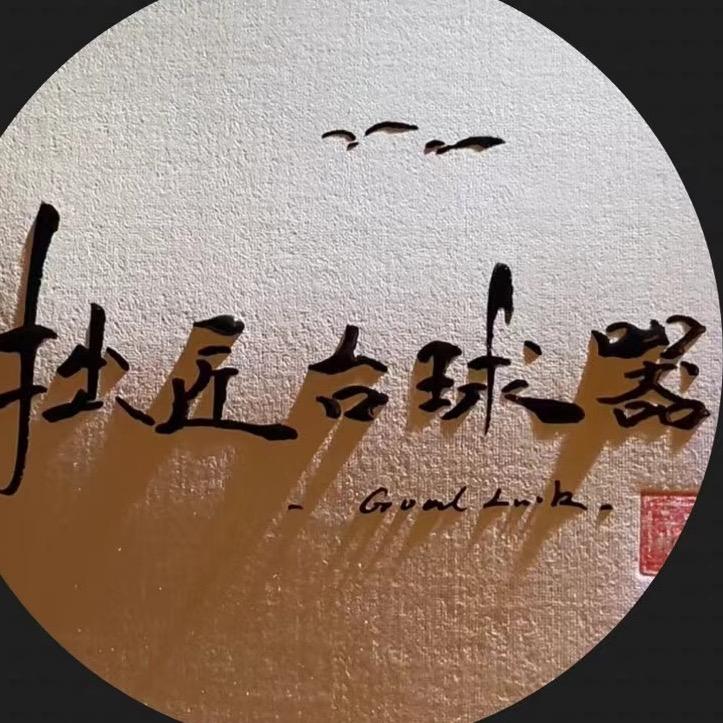 拙匠台球器
- Good Luck -